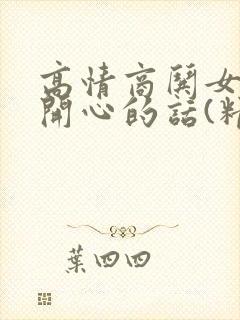 高情商鬨女
開心的話(
葉四四